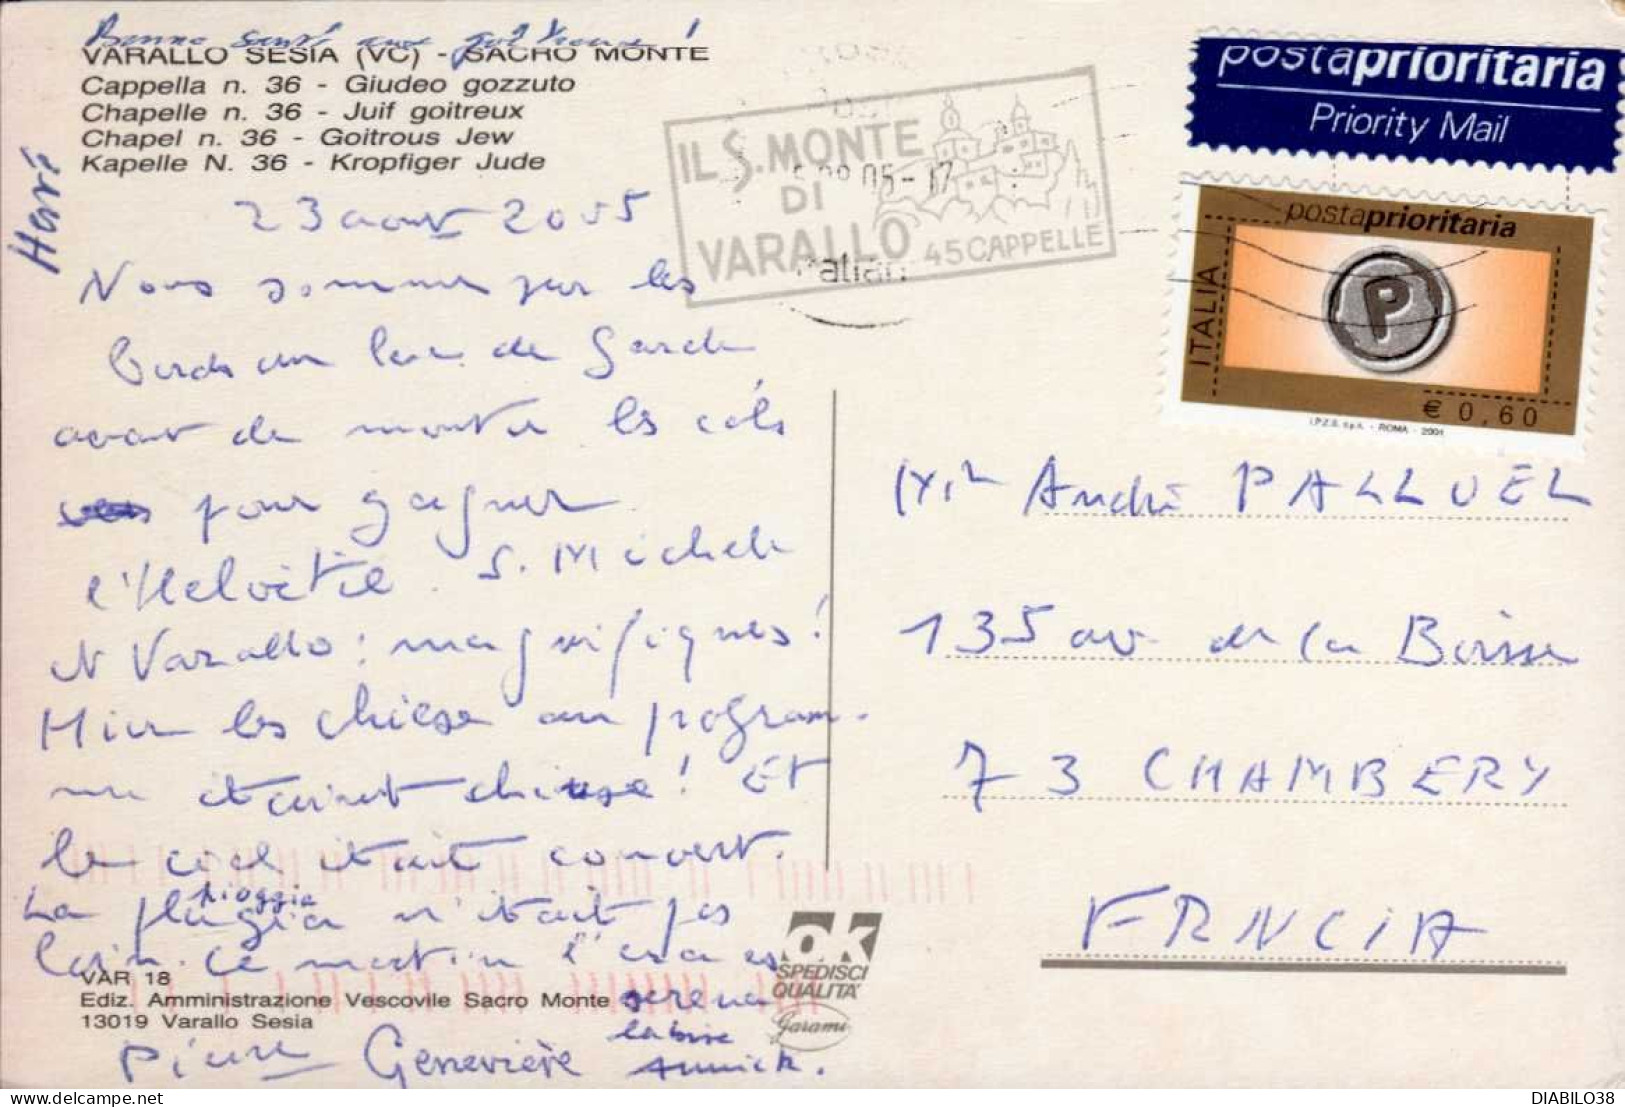 Bonne santé aux goitreux !
VARALLO SESIA (VC) - SACRO MONTE
Cappella n. 36 - Giudeo gozzuto
Chapelle n. 36 - Juif goitreux
Chapel n. 36 - Goitrous Jew
Kapelle N. 36 - Kropfiger Jude
23 août 2005
Nous sommes sur les
bords du lac de Garde
avant de monter les cols
pour gagner
l'Helvétie. S. Michele
Varallo : magnifiques !
Hier les chiese au program-
me étaient chiuse ! Et
le ciel était couvert.
pioggia
La pluggia n'était pas
loin. Ce matin l'eau es
serena
la bise
Pierre Geneviève Annick.
VAR 18
Ediz. Amministrazione Vescovile Sacro Monte
13019 Varallo Sesia
IL S. MONTE
DI
VARALLO 45 CAPPELLE
08 05-17
OK
SPEDISCI
QUALITA'
Garami
postaprioritaria
Priority Mail
postaprioritaria
ITALIA
P
€ 0,60
I.P.Z.S. S.p.A. - ROMA - 2001
Mr André PALLUEL
135 av. de la Boisse
73 CHAMBERY
FRNCIA
DIABILO38